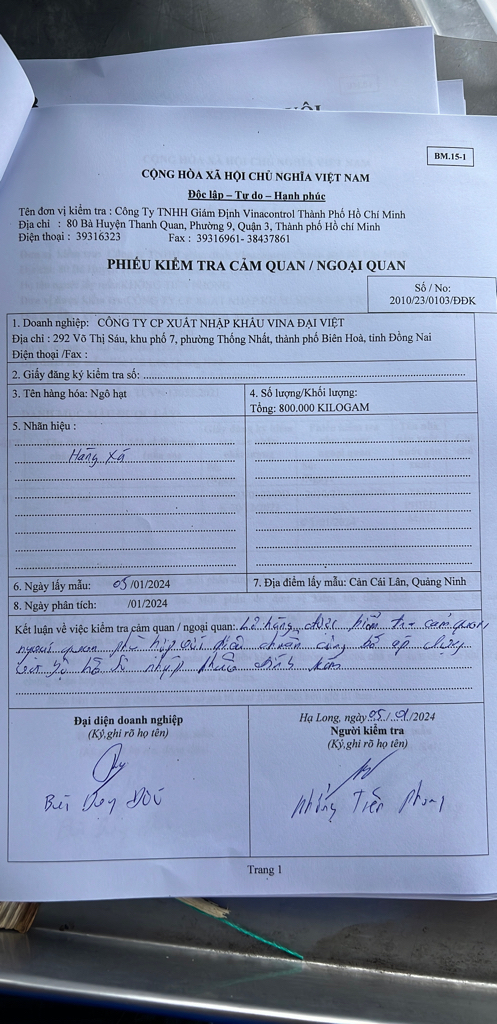 BM.15-1
CỘNG HÒA XÃ HỘI CHỦ NGHĨA VIỆT NAM
Độc lập – Tự do – Hạnh phúc
Tên đơn vị kiểm tra : Công Ty TNHH Giám Định Vinacontrol Thành Phố Hồ Chí Minh
Địa chỉ : 80 Bà Huyện Thanh Quan, Phường 9, Quận 3, Thành phố Hồ Chí Minh
Điện thoại : 39316323 Fax : 39316961- 38437861
PHIẾU KIỂM TRA CẢM QUAN / NGOẠI QUAN
Số / No:
2010/23/0103/ĐĐK
1. Doanh nghiệp: CÔNG TY CP XUẤT NHẬP KHẨU VINA ĐẠI VIỆT
Địa chỉ : 292 Võ Thị Sáu, khu phố 7, phường Thống Nhất, thành phố Biên Hoà, tỉnh Đồng Nai
Điện thoại /Fax :
2. Giấy đăng ký kiểm tra số:
3. Tên hàng hóa: Ngô hạt
4. Số lượng/Khối lượng:
Tổng: 800.000 KILOGAM
5. Nhãn hiệu :
Hàng xá
6. Ngày lấy mẫu: 05/01/2024
7. Địa điểm lấy mẫu: Cản Cái Lân, Quảng Ninh
8. Ngày phân tích: /01/2024
Kết luận về việc kiểm tra cảm quan / ngoại quan: Lô hàng được kiểm tra cảm quan,
ngoại quan phù hợp với tiêu chuẩn công bố áp dụng
và bộ hồ sơ nhập khẩu đính kèm
Đại diện doanh nghiệp
(Ký,ghi rõ họ tên)
Hạ Long, ngày 05/01/2024
Người kiểm tra
(Ký,ghi rõ họ tên)
Bùi
Tiến
Trang 1